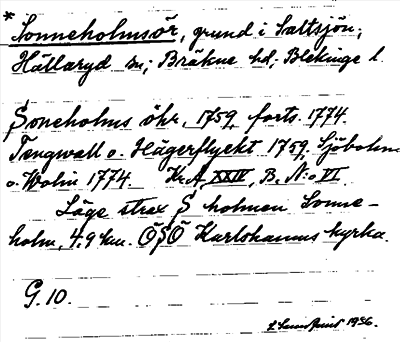 * Sonneholmsör, grund i Saltsjön;
Hällaryd sn; Bräkne hd; Blekinge l.
Soneholms öhr, 1759, forts. 1774.
Tengwall o. Hägerflyckt 1759, Sjöbohm
o. Wolin 1774. Kr.A, XXIV, B, N:o VI.
Läge strax S holmen Sonne-
holm, 4.9 km. ÖSÖ Karlshamns kyrka.
G. 10.
1936.